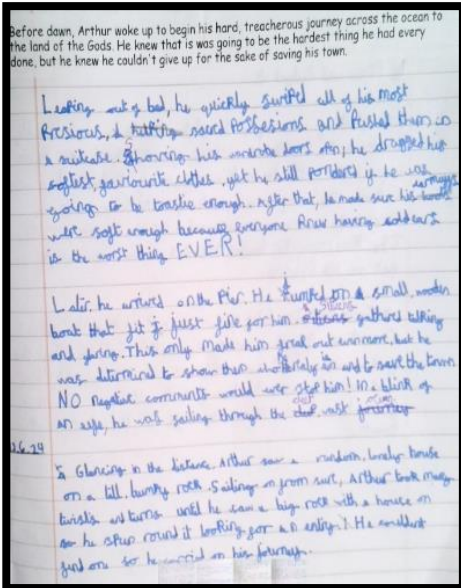 Before dawn, Arthur woke up to begin his hard, treacherous journey across the ocean to
the land of the Gods. He knew that is was going to be the hardest thing he had every
done, but he knew he couldn't give up for the sake of saving his town.
Leaping out of bed, he quickly swiped all of his most
Presious, & sacred Possesions and Pushed them in
a suitcase. Shoving his doors ; he dragged his
softest, gaviourite clothes, yet he still ponderd if he was
going to be toastie enough. After that, he made sure his earmuggs
were soft enough because everyone knew having cold ears
is the worst thing EVER!
Later, he arrived on the Pier. He Jumped on a small, wooden
boat that fit just fine for him. gathered talking
and . This only made him freak out more, but he
was determind to show them who and to save the town
NO negative comments would ever stop him! In a blink of
an eye, he was sailing through the vast
12.6.24
Glancing in the distance, Arthur saw a random, lonely house
on a tall, bumpy rock. Sailing from , Arthur took many
twists and turns until he saw a big rock with a house on
so he spun round it looking for an entry. He couldent
find one so he carried on his journey.